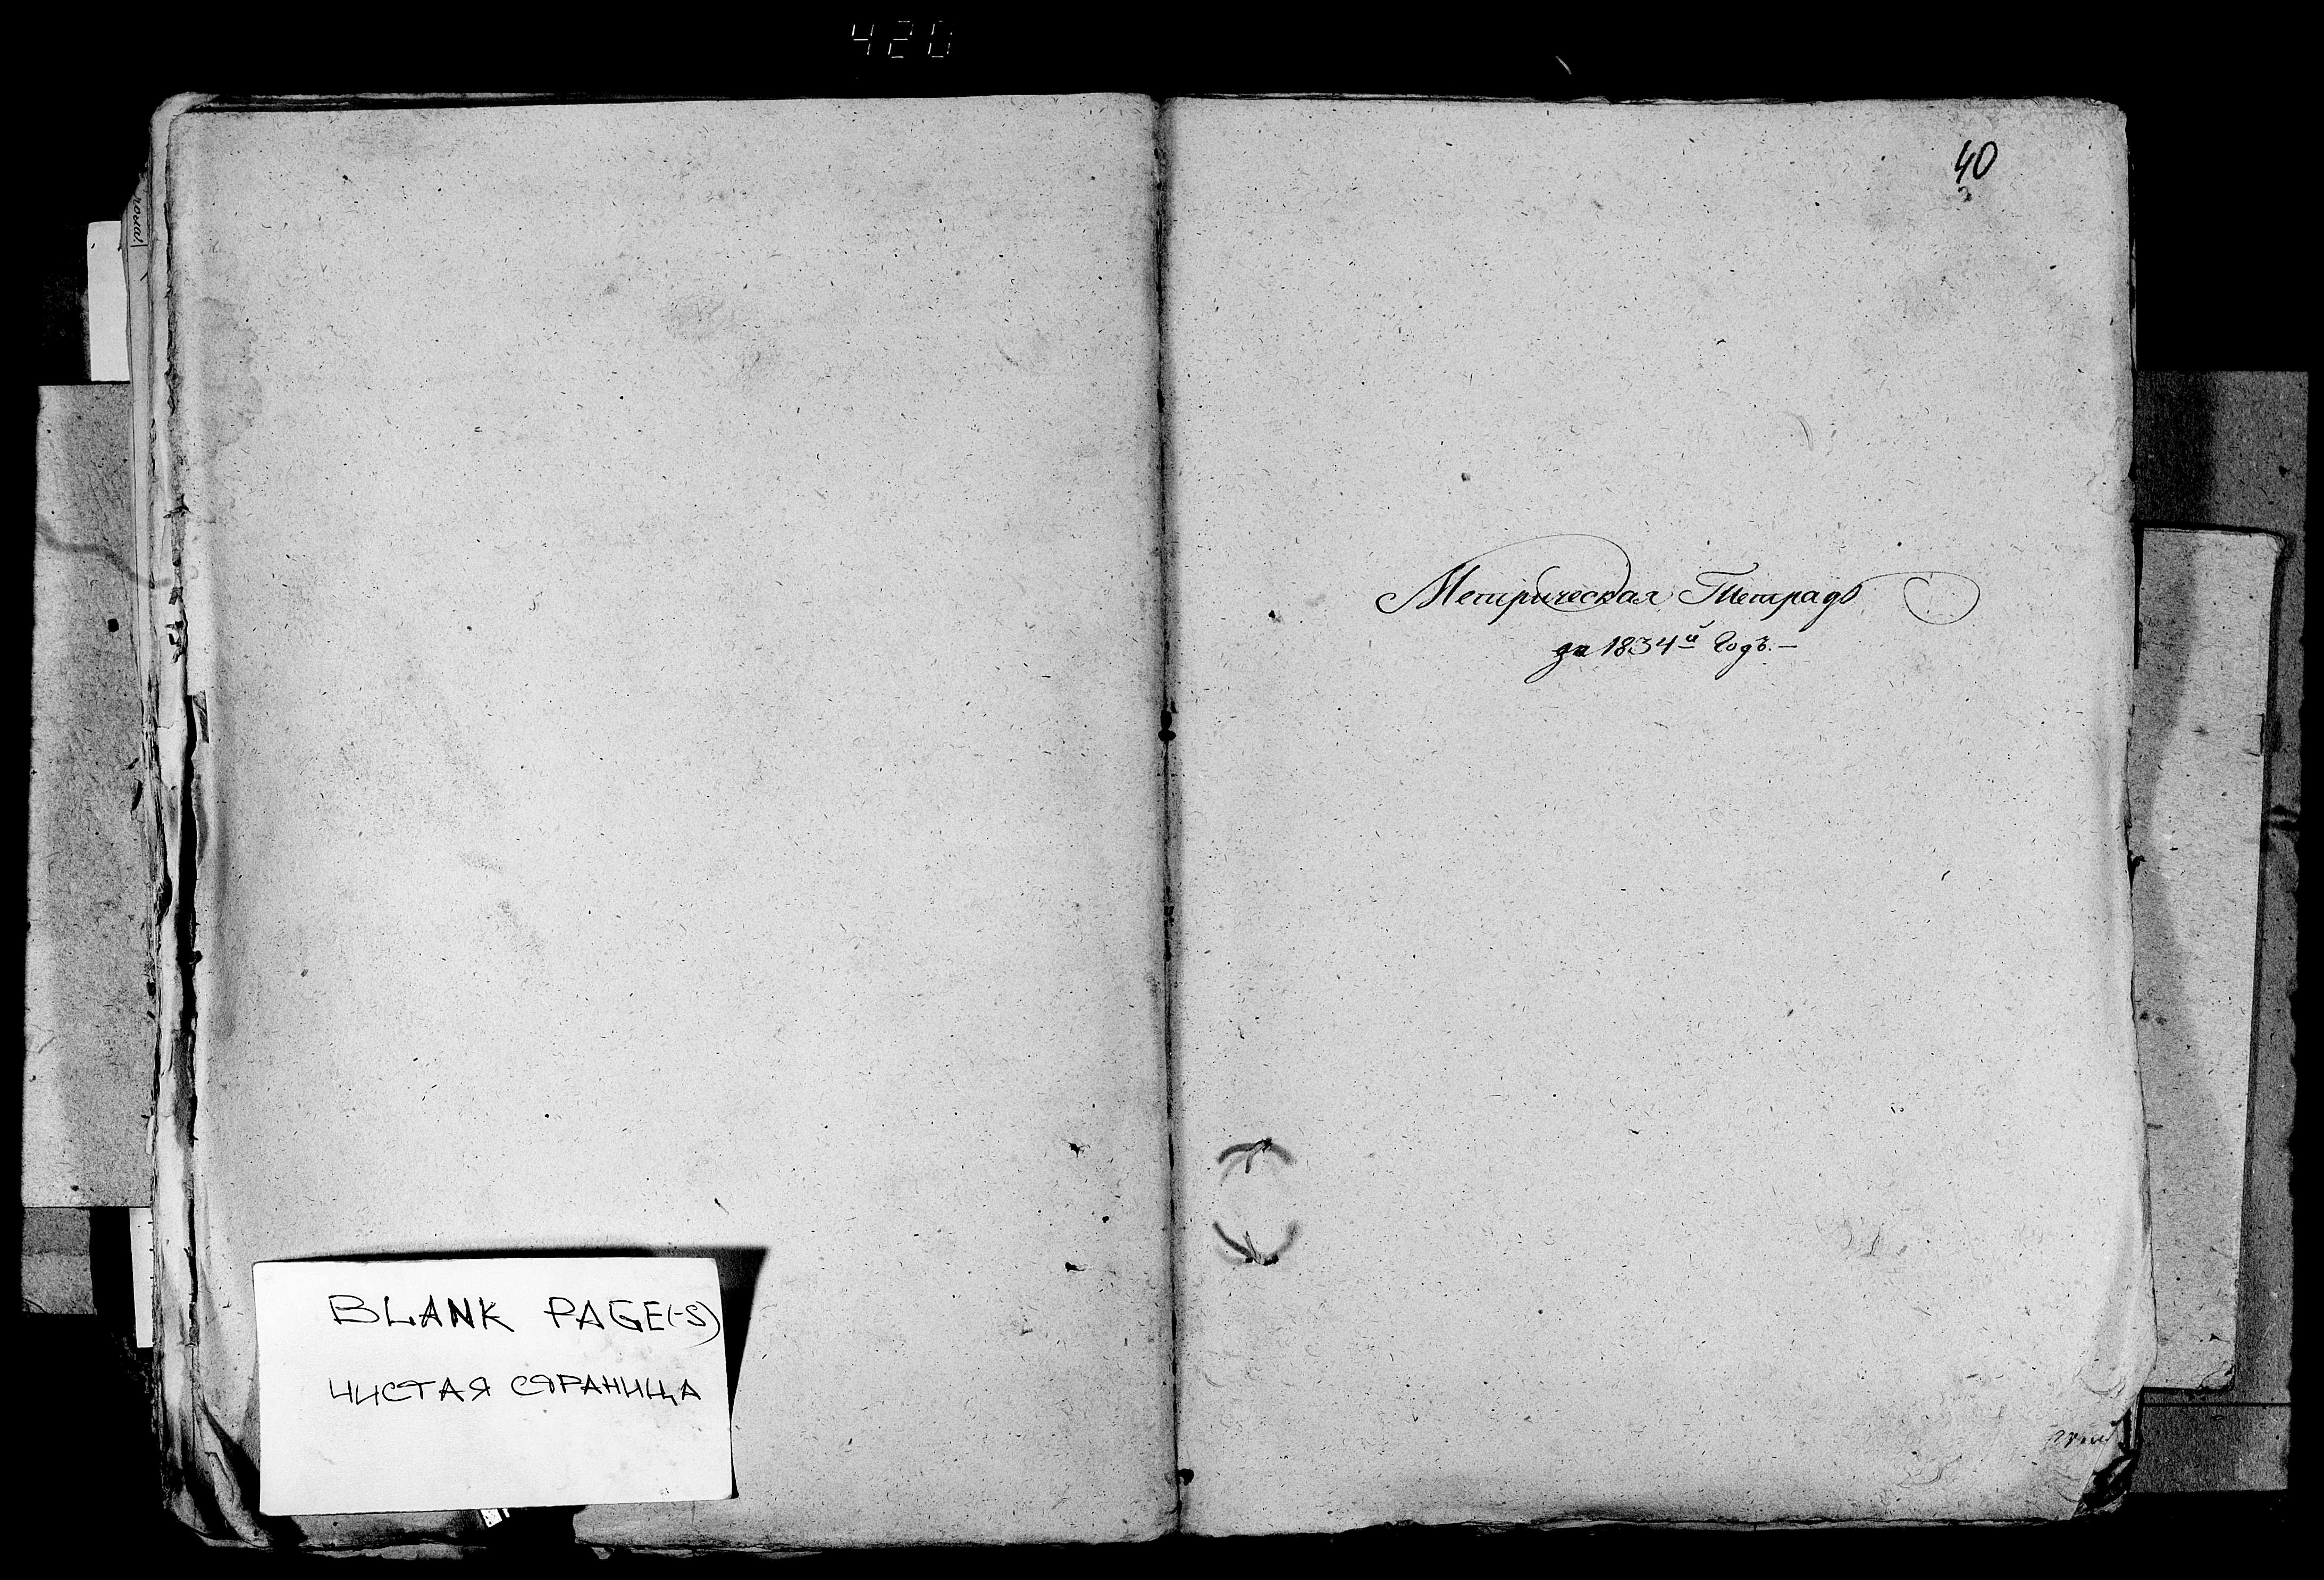 420
40
Метрическая Тетрадь
за 1834й Годъ.—
BLANK PAGE(-S)
ЧИСТАЯ СТРАНИЦА